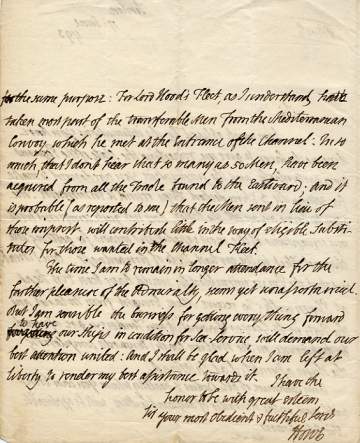 for the same purpose: For Lord Hood's Fleet, as I understand, have
taken most part of the transferable Men from the Mediterranean
Convoy, which he met at the Entrance of the Channel: In so
much, that I don't hear that so many as 50 Men, have been
acquired from all the Trade bound to the Eastward; and it
is probable (as reported to me) that the Men sent in lieu of
those imprest, will contribute little in the way of eligible Substi-
tutes for those wanted in the Channel Fleet.
The time I am to remain in longer attendance for the
further pleasure of the Admiralty, seem yet
But I am sensible the business for getting every thing forward
to have
our Ships in condition for Sea Service will demand our
best attention united: And I shall be glad when I am left at
liberty to render my best assistance towards it. I have the
honor to be with great esteem
Sir your most obedient & faithful Serv
Howe